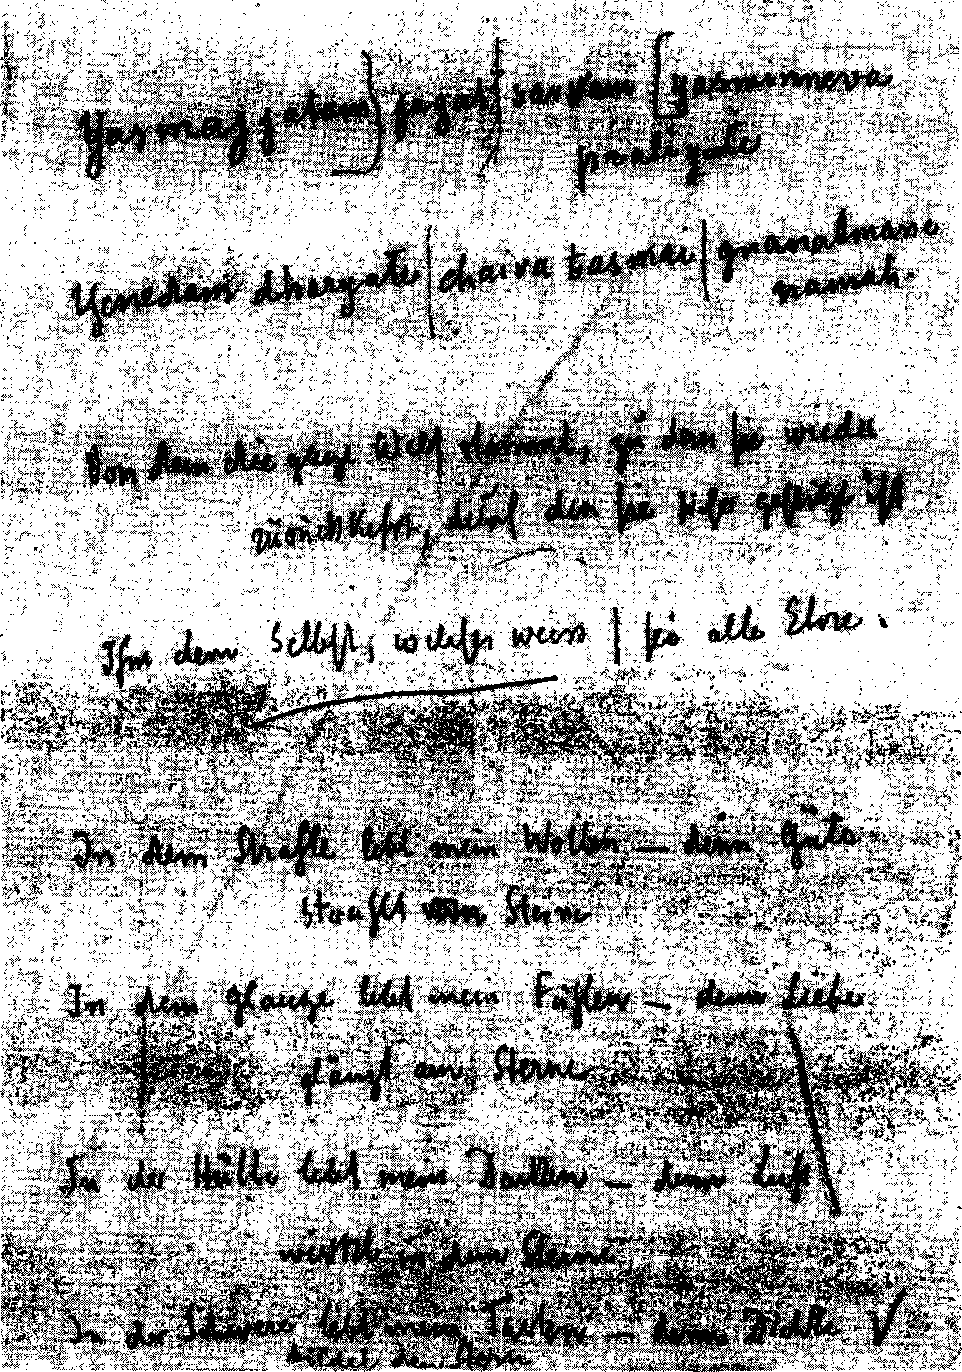 Yasmajjatam jagat sarvam yasminneva
praliyate
Yenedam dharyate chaiva tasmai gnanatmane
namah.
Von dem die ganze Welt stammt, zu dem sie wieder
zurückkehrt, durch den sie gestützt ist
Ihm dem Selbst, welches weiss sei alle Ehre.
In dem Strahle lebt mein Wollen — deine Güte
strahlet Steine
In dem Glanze lebt mein Fühlen — deine Liebe
glänzt am Sterne
In der Hülle lebt mein Denken — deine
wirket in dem Steine
In der Schwere lebt mein — deine
bildet den Stern